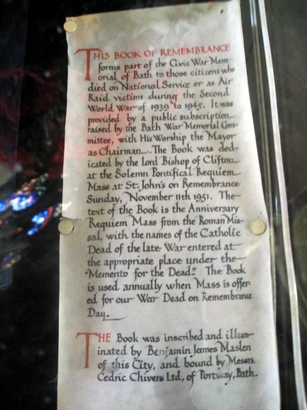 THIS BOOK OF REMEMBRANCE
forms part of the Civic War Mem-
orial of Bath to those citizens who
died on National Service or as Air
Raid victims during the Second
World War of 1939 to 1945. It was
provided by a public subscription
raised by the Bath War Memorial Com-
mittee, with His Worship the Mayor
as Chairman. The Book was ded-
icated by the Lord Bishop of Clifton
at the Solemn Pontifical Requiem
Mass at St. John's on Remembrance
Sunday, November 11th 1951. The
text of the Book is the Anniversary
Requiem Mass from the Roman Mis-
sal, with the names of the Catholic
Dead of the late War entered at
the appropriate place under the
"Memento for the Dead." The Book
is used annually when Mass is offer-
ed for our War Dead on Remembrance
Day.
THE Book was inscribed and illum-
inated by Benjamin James Maslen
of this City, and bound by Messrs.
Cedric Chivers Ltd, of Portway, Bath.